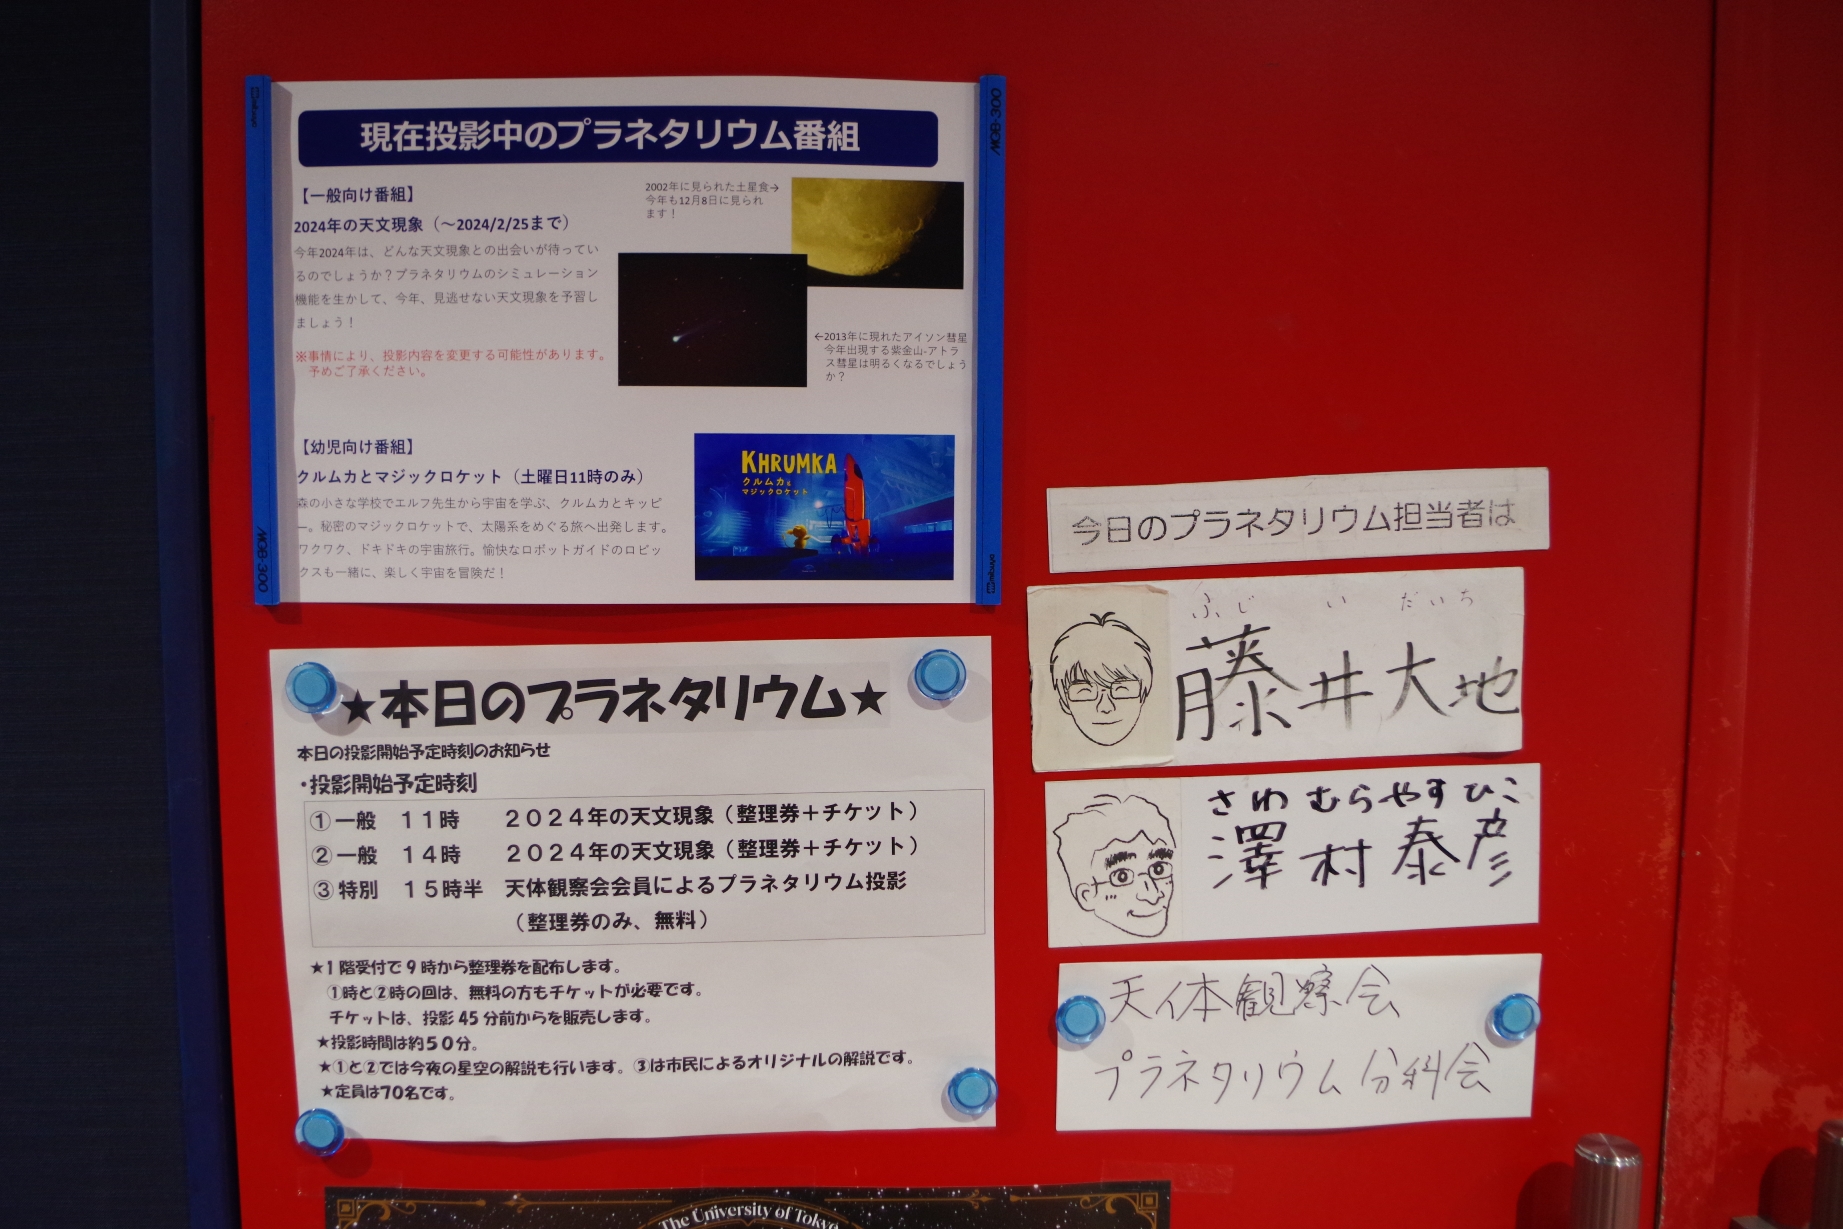 現在投影中のプラネタリウム番組
【一般向け番組】
2024年の天文現象（～2024/2/25まで）
今年2024年は、どんな天文現象との出会いが待ってい
るのでしょうか？プラネタリウムのシミュレーション
機能を生かして、今年、見逃せない天文現象を予習し
ましょう！
※事情により、投影内容を変更する可能性があります。
予めご了承ください。
2002年に見られた土星食→
今年も12月8日に見られ
ます！
←2013年に現れたアイソン彗星
今年出現する紫金山-アトラ
ス彗星は明るくなるでしょう
か？
【幼児向け番組】
クルムカとマジックロケット（土曜日11時のみ）
森の小さな学校でエルフ先生から宇宙を学ぶ、クルムカとキッピ
ー。秘密のマジックロケットで、太陽系をめぐる旅へ出発します。
ワクワク、ドキドキの宇宙旅行。愉快なロボットガイドのロビッ
クスも一緒に、楽しく宇宙を冒険だ！
KHRUMKA
クルムカと
マジックロケット
MOB-300
MOB-300
★本日のプラネタリウム★
本日の投影開始予定時刻のお知らせ
・投影開始予定時刻
①一般 11時 2024年の天文現象（整理券＋チケット）
②一般 14時 2024年の天文現象（整理券＋チケット）
③特別 15時半 天体観察会会員によるプラネタリウム投影
（整理券のみ、無料）
★1階受付で9時から整理券を配布します。
①時と②時の回は、無料の方もチケットが必要です。
チケットは、投影45分前からを販売します。
★投影時間は約50分。
★①と②では今夜の星空の解説も行います。③は市民によるオリジナルの解説です。
★定員は70名です。
今日のプラネタリウム担当者は
ふじ い だいち
藤井大地
さわ むら やす ひこ
澤村泰彦
天体観察会
プラネタリウム分科会
The University of Tokyo